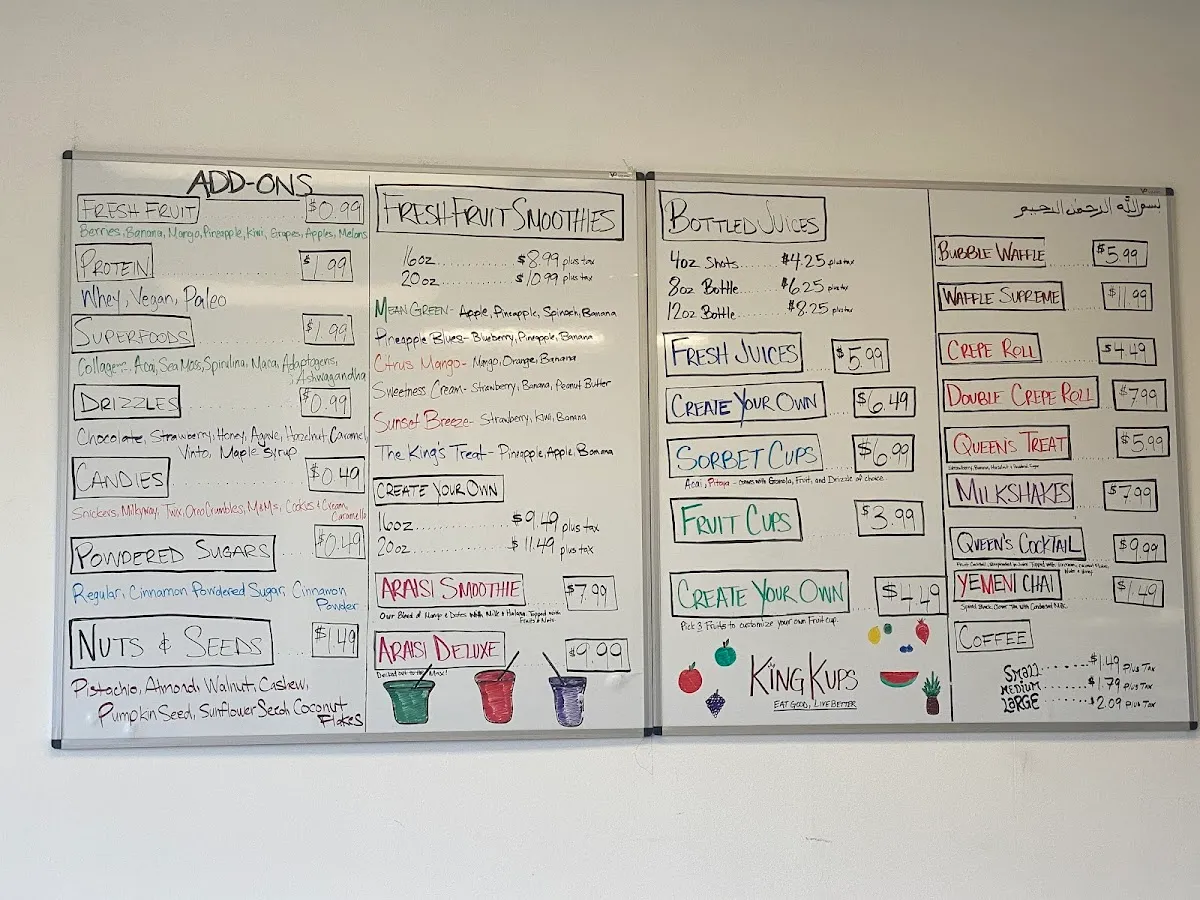 ADD-ONS
FRESH FRUIT $0.99
Berries, Banana, Mango, Pineapple, Kiwi, Grapes, Apples, Melons
PROTEIN $1.99
Whey, Vegan, Paleo
SUPERFOODS $1.99
Collagen, Acai, Sea Moss, Spirulina, Maca, Adaptogens,
Ashwagandha
DRIZZLES $0.99
Chocolate, Strawberry, Honey, Agave, Hazelnut, Caramel,
Vimto, Maple Syrup
CANDIES $0.49
Snickers, Milkyway, Twix, Oreo Crumbles, M&Ms, Cookies & Cream,
Caramello
POWDERED SUGARS $0.49
Regular, Cinnamon Powdered Sugar, Cinnamon
Powder
NUTS & SEEDS $1.49
Pistachio, Almond, Walnut, Cashew,
Pumpkin Seed, Sunflower Seed, Coconut
Flakes
FRESH FRUIT SMOOTHIES
16oz $8.99 plus tax
20oz $10.99 plus tax
MEAN GREEN - Apple, Pineapple, Spinach, Banana
Pineapple Blues - Blueberry, Pineapple, Banana
Citrus Mango - Mango, Orange, Banana
Sweetness Cream - Strawberry, Banana, Peanut Butter
Sunset Breeze - Strawberry, Kiwi, Banana
The King's Treat - Pineapple, Apple, Banana
CREATE YOUR OWN
16oz $9.49 plus tax
20oz $11.49 plus tax
ARAISI SMOOTHIE $7.99
Our Blend of Mango & Dates with Milk & Halawa. Topped with
Fruits & Nuts.
ARAISI DELUXE $9.99
Decked out to the Max!
BOTTLED JUICES
4oz Shots $4.25 plus tax
8oz Bottle $6.25 plus tax
12oz Bottle $8.25 plus tax
FRESH JUICES $5.99
CREATE YOUR OWN $6.49
SORBET CUPS $6.99
Acai, Pitaya - comes with Granola, Fruit, and Drizzle of choice
FRUIT CUPS $3.99
CREATE YOUR OWN $4.49
Pick 3 Fruits to customize your own Fruit cup.
The KING KUPS
EAT GOOD, LIVE BETTER
بسم الله الرحمن الرحيم
BUBBLE WAFFLE $5.99
WAFFLE SUPREME $11.99
CREPE ROLL $4.49
DOUBLE CREPE ROLL $7.99
QUEEN'S TREAT $5.99
Strawberry, Banana, Hazelnut & Powdered Sugar
MILKSHAKES $7.99
QUEEN'S COCKTAIL $9.99
Nuts & Honey
YEMENI CHAI $1.49
Spiced Black Clove Tea with Condensed Milk.
COFFEE
SMALL $1.49 PLUS TAX
MEDIUM $1.79 PLUS TAX
LARGE $2.09 PLUS TAX